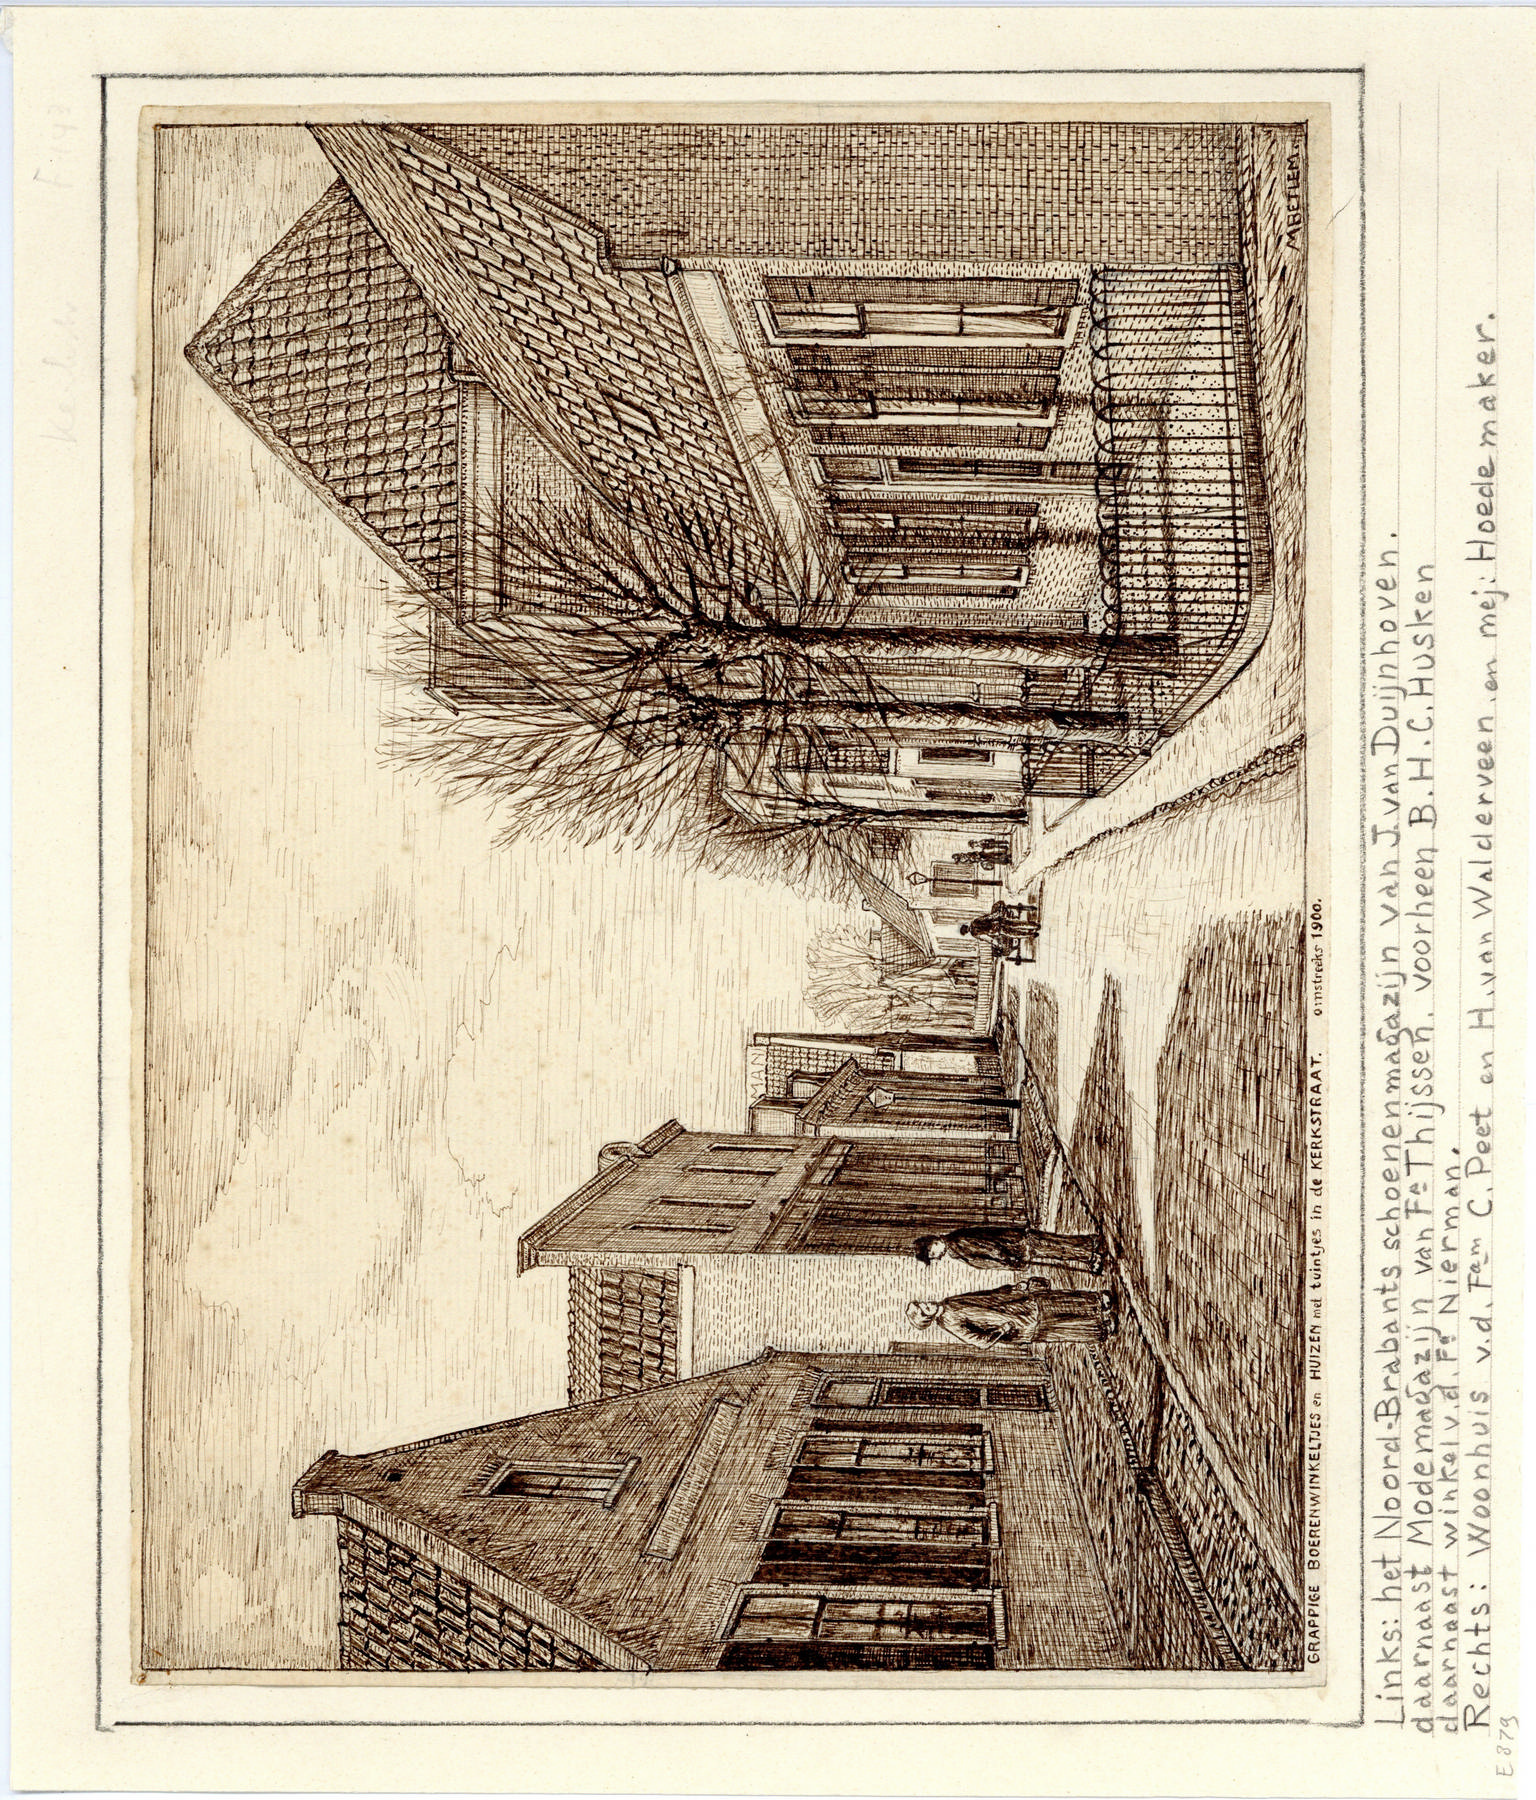 M BETLEM.
MAN
GRAPPIGE BOERENWINKELTJES en HUIZEN met tuintjes in de KERKSTRAAT. omstreeks 1900.
Links: het Noord-Brabants schoenenmagazijn van J. van Duijnhoven.
daarnaast Modemagazijn van Fa Thijssen. voorheen B.H.C. Husken
daarnaast winkel v.d. Fa Nierman.
Rechts: Woonhuis v.d. Fam C. Peet en H. van Walderveen en mej: Hoedemaker.
E 879